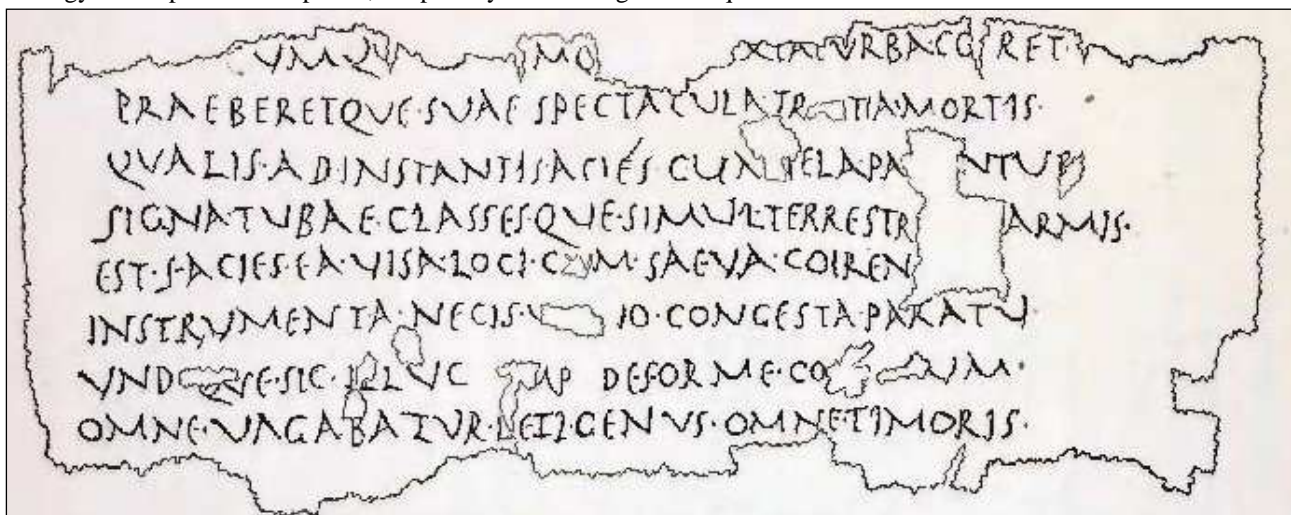 VMQ MO XTATVRBACO RET·
PRAEBERETQVE·SVAE SPECTACVLA TR TIA·MORTIS·
QVALIS·AD·INSTANTIS·ACIES CVM TELA·PA NTVR
SIGNA·TVBAE·CLASSESQVE·SIMVL·TERRESTR ARMIS·
EST·FACIES·EA·VISA·LOCI·CVM·SAEVA·COIREN
INSTRVMENTA·NECIS·V IO·CONGESTA·PARATV·
VND QVE·SIC·ILLVC AP DEFORME·CO VM·
OMNE·VAGABATVR·LETI·GENVS·OMNE·TIMORIS·